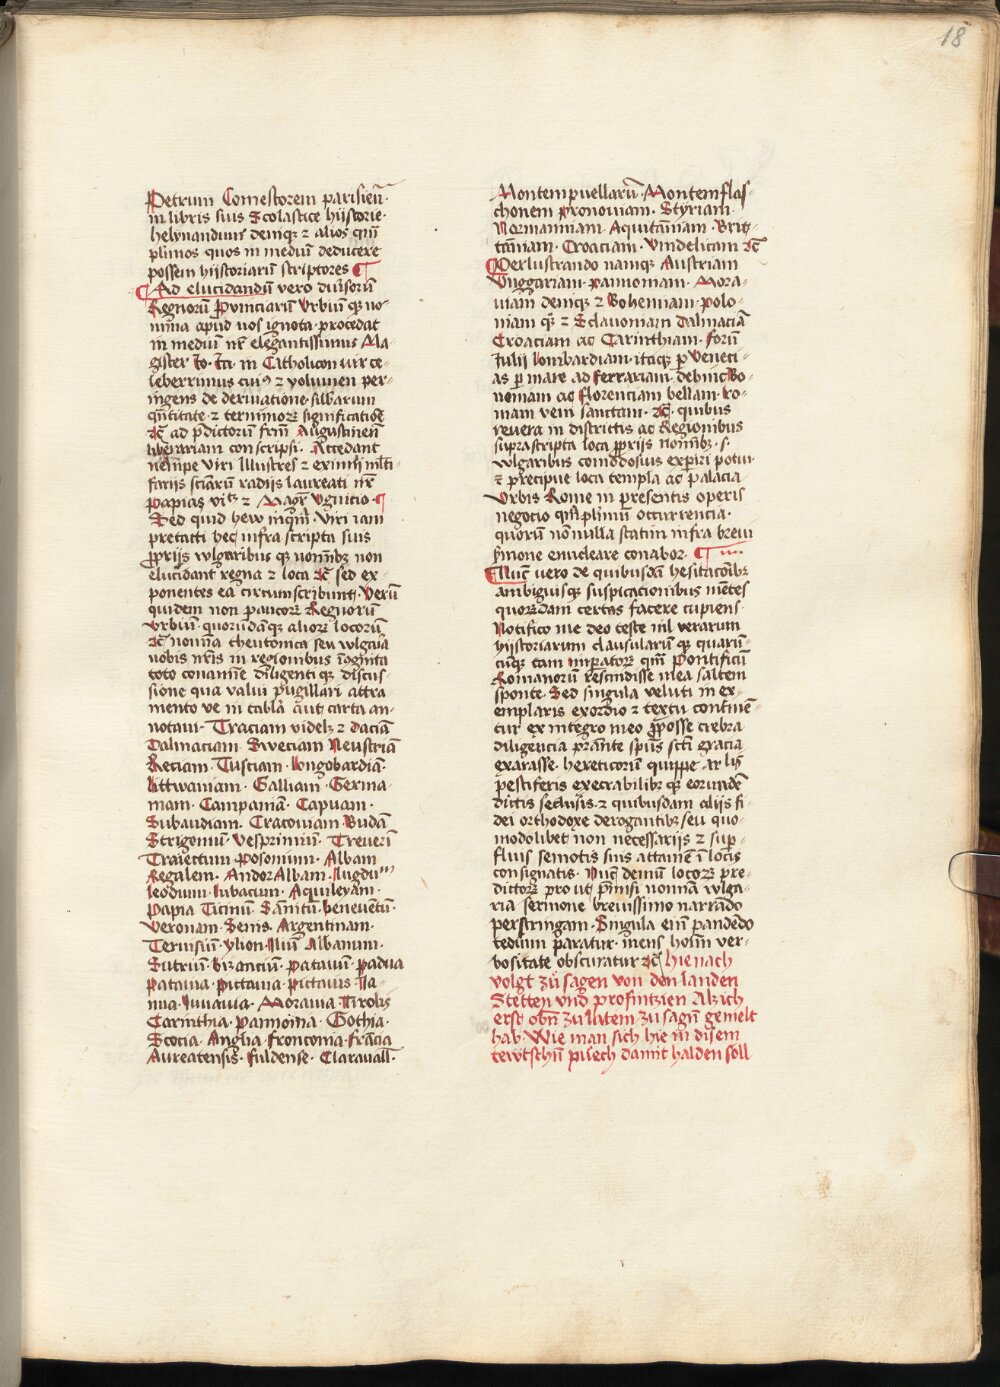 18
Petrum Comestorem parisieñ·
in libris suis Scolastice hijstorie·
helynandum deinqꝫ ⁊ alios qm̄
plimos quos in mediū deducere
possem hijstoriarū scriptores ¶
¶ Ad elucidandū vero diuisorū
Regnorū Prouinciarū Vrbiū qꝫ no-
mina apud uos ignota procedat
in mediū nr̄ elegantissimus Ma-
gister Jo· Ja· in Catholicon vir ce-
leberrimus cuiꝰ ⁊ volumen per-
ingens de deriuatione· sillbarum
qn̄titate· ⁊ terminoꝝ significatiōe
⁊c̄ ad p̄dictorū frm̄ Augustineñ
librariam conscripsi· Accedant
nempe viri Illustres ⁊ eximij mlti-
farijs sciarū radijs laureati nr̄
papias vitꝫ ⁊ Magr̄ Vgutio ¶
Sed quid hew inqm̄· viri iam
pretacti hec infra scripta suis
proprijs wlgaribus qꝫ nomībꝫ non
elucidant regna ⁊ loca ⁊c̄ sed ex-
ponentes ea circumscribunt· Verū
quidem non paucoꝝ Regnorū
Vrbiū quorūdāqꝫ alioꝝ locorū
⁊c̄ nomina theutonica seu wlgaria
uobis nr̄is in regionibus īognita
toto conamine diligenti qꝫ discus-
sione qua valui pugillari attra-
mento ve in tabla aut carta an-
notaui· Traciam videlꝫ ⁊ daciā
Dalmaciam· Sweciam Neustriā
Reciam· Tusciam· longobardiā·
littwaniam· Galliam· Germa-
niam· Campaniā· Capuam·
Subaudiam· Cracouiam· Budā
Strigoniū· Vesprimiū· Treueri
Traiectum· posonium· Albam
Regalem· Andor Albam· lugdu
leodium· lubacum· Aquileyam·
Papia Ticinū· Sānitū· beneuētū·
Veronam· Senis· Argentinam·
Teruisiū· ylion· Iliū· Albanum·
Sutriū· bizanciū· patauiū· padua
patauia· pictauia· pictauis· Ia-
nua· Iuuauia· Morauia· Tirolis
Carinthia· pannoīna· Gothia·
Scocia· Anglia· fronconia· frācia
Aureatensis· fuldense· Clarauall̄·
Montempuellarū· Montemflas-
chonem pronouiam· Styriam·
Normanniam· Aquitāniam· Brit-
tāniam· Croaciam· Vindelicam ⁊c̄
¶Perlustrando namqꝫ Austriam
Vnggariam· pannoniam· Mora-
uiam deinqꝫ ⁊ Bohemiam· polo-
niam qꝫ ⁊ Sclauoniam dalmaciā
Croaciam ac Carinthiam· forū
Julij lombardiam· itaqꝫ p Veneti-
as p mare ad ferrariam· dehinc Bo-
noniam ac florenciam bellam· ro-
mam vein sanctam· ⁊c̄· quibus
reuera in districtis ac Regionibus
suprascripta loca prprijs nomībꝫ· s·
wlgaribus comōdosius experiri potui·
⁊ precipue loca templa ac palacia
Vrbis Rome in presentis operis
negocio qm̄plimū occurrencia·
quorū nonnulla statim infra breui
sermone enucleare conabor· ¶
¶Nūc vero de quibusdā hesitacōibꝫ
ambiguisqꝫ suspicacionibus mētes
quorūdam certas facere cupiens·
Notifico me deo teste nil verarum
hijstoriarum clausularū qꝫ quarū-
cūqꝫ tam imparatoꝝ qm̄ pontificū
Romanorū rescindisse mea saltem
sponte· Sed singula veluti in ex-
emplaris exordio ⁊ textu continē-
tur ex integro meo pposse crebra
diligencia prānte spūs scti gracia
exarasse· hereticorū quippe ac lijs
pestiferis execrabilibꝫ qꝫ eorundē
dictis seclusis· ⁊ quibusdam alijs fi-
dei orthodoxe derogantibꝫ seu quo-
modolibet non necessarijs ⁊ sup-
fluis semotis suis attamē ī locis
consignatis· Nūc demū locoꝝ pre-
dictoꝝ pro ut p̄misi nomina wlga-
ria sermone breuissimo narrādo
perstringam· Singula em̄ pandēdo
tediūm paratur· mens hoīm ver-
bositate obscuratur ⁊c̄ hie nach
volgt zů sagen von den landen
Stetten vnd profintzien Alz ich
erst obn̄ zu latein zu sagn̄ gemelt
hab· Wie man sich hie in disem
tewtschn̄ půech damit halden söll